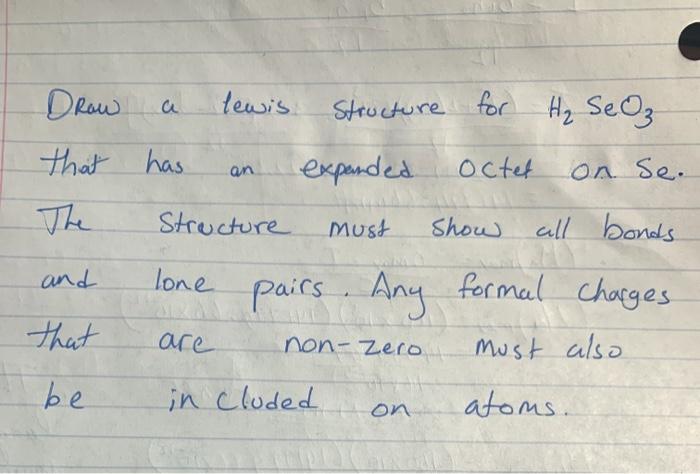 Draw a lewis structure for H₂SeO₃
that has an expanded octet on Se.
The structure must show all bonds
and lone pairs. Any formal charges
that are non-zero must also
be included on atoms.